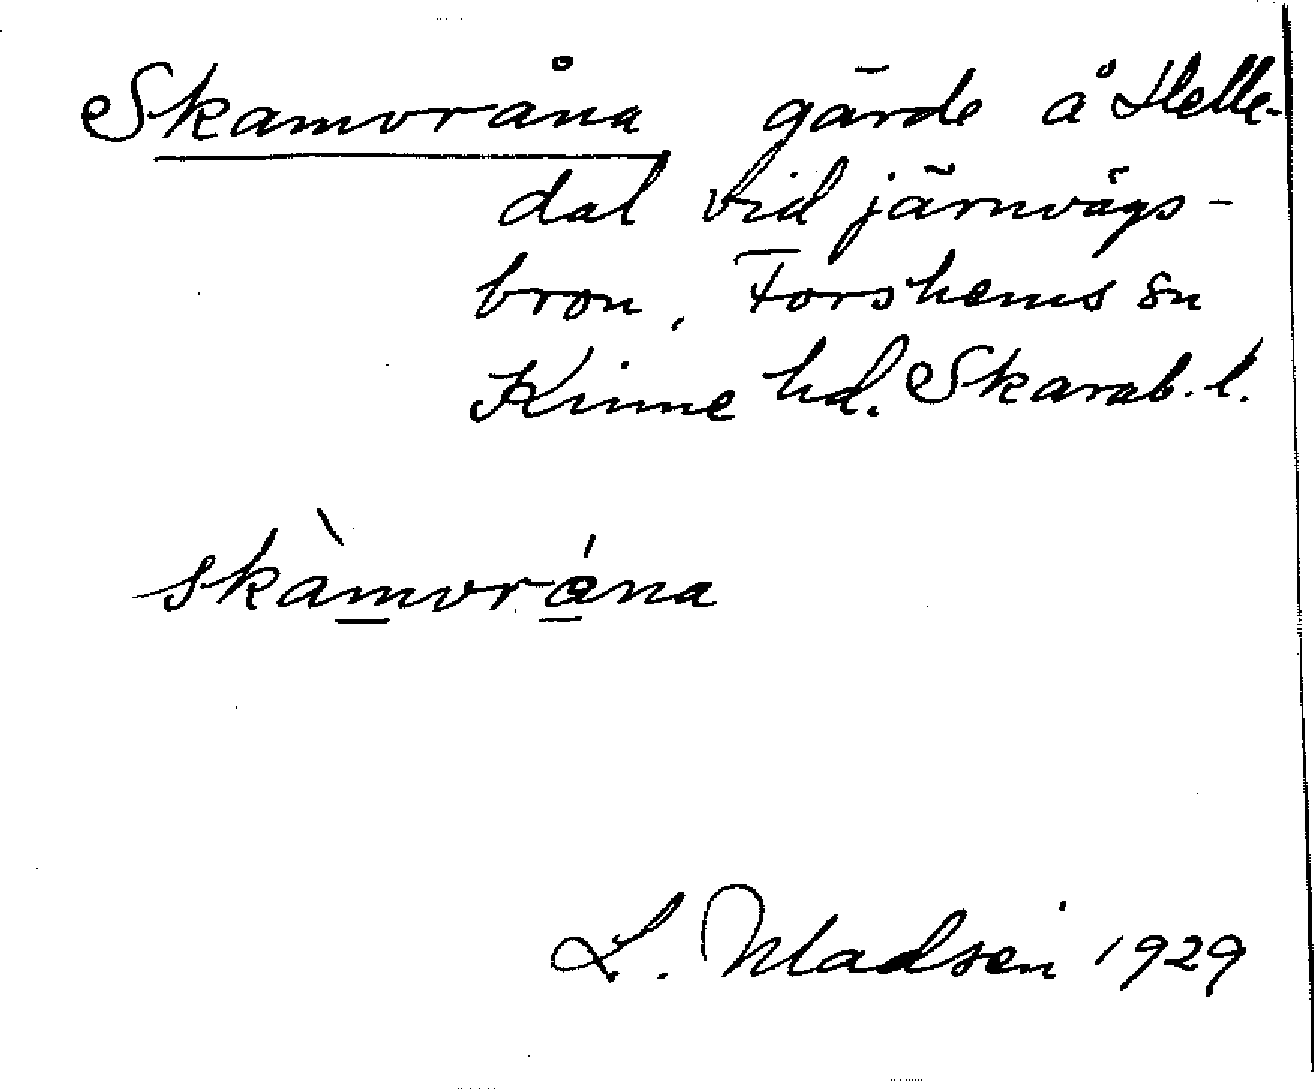 Skamvråna gärde å Helle-
dal vid järnvägs-
bron, Forshems sn
Kinne hd. Skarab. l.
skàmvrána
L. Madsen 1929